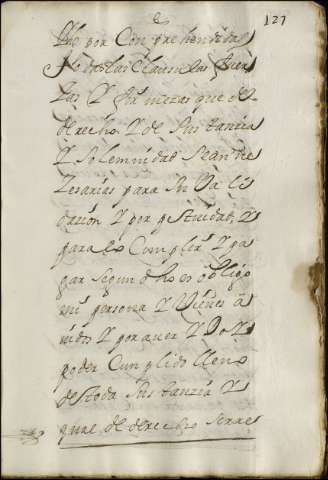 127
Y he por Conprehendidas
todas las Clausulas fuer
zas Y firmezas que de
derecho Y de Sustanzia
Y Solemnidad Sean ne
zesarias para Su Vali
dazion Y perpetuidad, Y
para lo Cumplir Y pa
gar segun dho es obligo
mi persona Y Vienes a
vidos Y por aver Y Doy
poder Cumplido lleno
de toda Sustanzia Y
qual de derecho Se rre